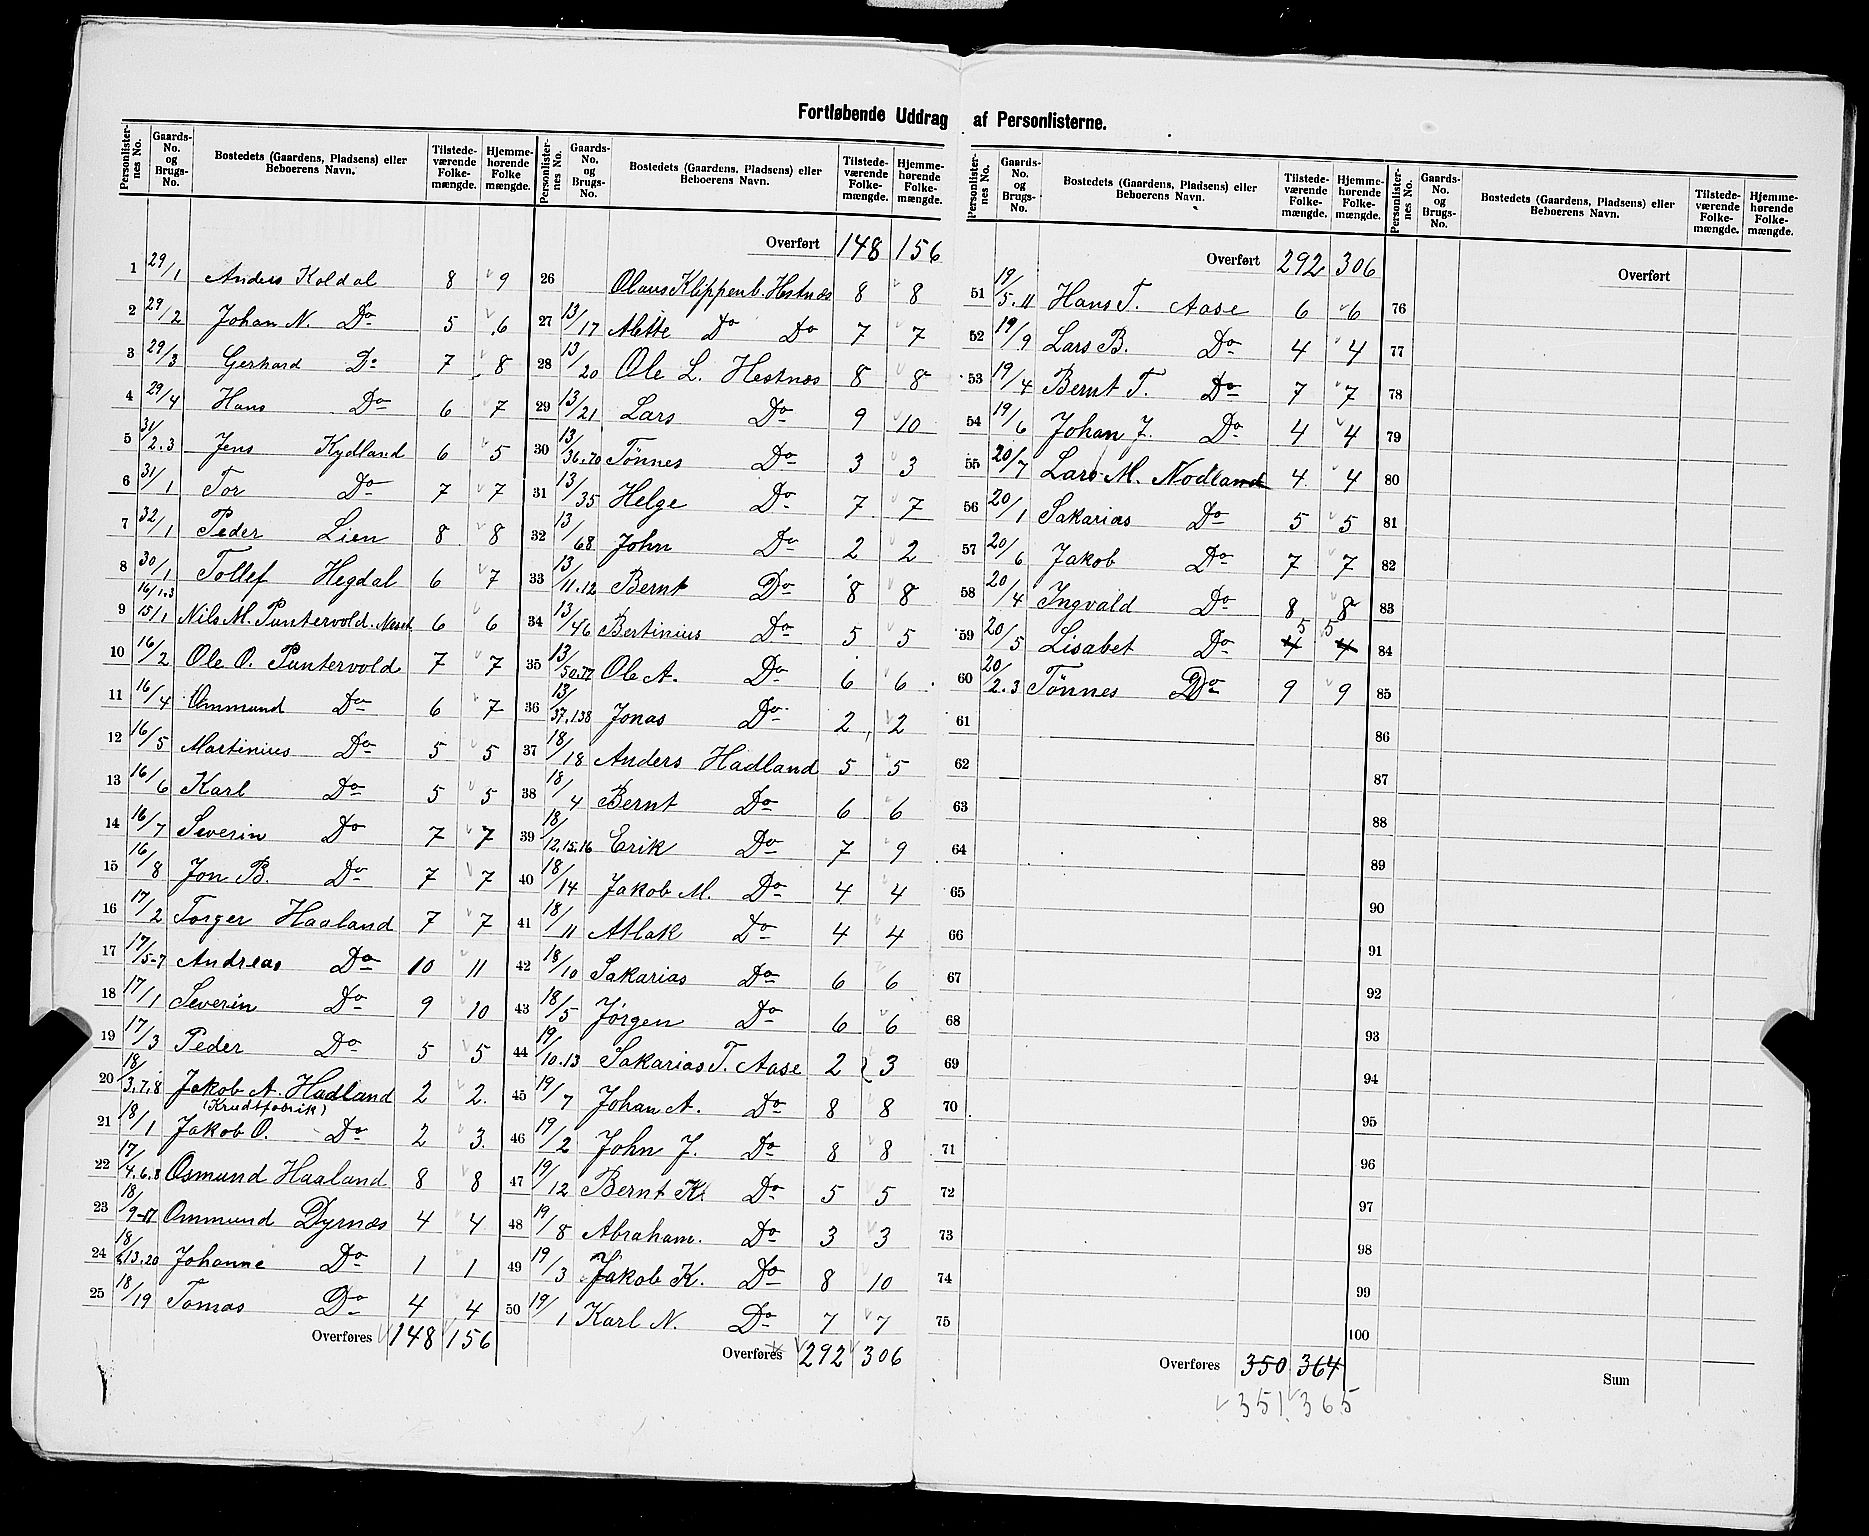 Fortløbende Uddrag af Personlisterne.
Personlister-nes No. | Gaards-No. og Brugs-No. | Bostedets (Gaardens, Pladsens) eller Beboerens Navn. | Tilstede-værende Folke-mængde. | Hjemme-hørende Folke mængde.
1 29/1 Anders Koldal 8 9
2 29/2 Johan N. Do 5 6
3 29/3 Gerhard Do 7 8
4 29/4 Hans Do 6 7
5 31/2.3 Jens Kydland 6 5
6 31/1 Tor Do 7 7
7 32/1 Peder Lien 8 8
8 30/1 Tollef Hegdal 6 7
9 16/1.3 15/1 Nils M. Puntervold. Neset 6 6
10 16/2 Ole O. Puntervold 7 7
11 16/4 Ommund Do 6 7
12 16/5 Martinius Do 5 5
13 16/6 Karl Do 5 5
14 16/7 Severin Do 7 7
15 16/8 Jon B. Do 7 7
16 17/2 Torger Haaland 7 7
17 17/5-7 Andreas Do 10 11
18 17/1 Severin Do 9 10
19 17/3 Peder Do 5 5
20 18/3.7.8 Jakob A. Hadland 2 2.
(Krudtfabrik)
21 18/1 Jakob O. Do 2 3.
22 17/4.6.8 Osmund Haaland 8 8
23 18/9-17 Ommund Dyrnæs 4 4
24 18/2.13.20 Johanne Do 1 1
25 18/19 Tomas Do 4 4
Overføres 148 156
Personlister-nes No. | Gaards-No. og Brugs-No. | Bostedets (Gaardens, Pladsens) eller Beboerens Navn. | Tilstede-værende Folke-mængde. | Hjemme-hørende Folke-mængde.
Overført 148 156
26 Olaus Klippenb. Hestnæs 8 8
27 13/17 Alette Do Do 7 7
28 13/20 Ole L. Hestnæs 8 8
29 13/21 Lars Do 9 10
30 13/36.70 Tönnes Do 3 3
31 13/35 Helge Do 7 7
32 13/68 John Do 2 2
33 13/11.12 Bernt Do 8 8
34 13/46 Bertinius Do 5 5
35 13/50.77 Ole A. Do 6 6
36 13/37.138 Jonas Do 2 2
37 18/18 Anders Hadland 5 5
38 18/4 Bernt Do 6 6
39 18/12.15.16 Erik Do 7 9
40 18/14 Jakob M. Do 4 4
41 18/11 Atlak Do 4 4
42 18/10 Sakarias Do 6 6
43 18/5 Jørgen Do 6 6
44 19/10.13 Sakarias T. Aase 2 3
45 19/7 Johan A. Do 8 8
46 19/2 John J. Do 8 8
47 19/12 Bernt K. Do 5 5
48 19/8 Abraham. Do 3 3
49 19/3 Jakob K. Do 8 10
50 19/1 Karl N. Do 7 7
Overføres 292 306
Personlister-nes No. | Gaards-No. og Brugs-No. | Bostedets (Gaardens, Pladsens) eller Beboerens Navn. | Tilstede-værende Folke-mængde. | Hjemme-hørende Folke-mængde.
Overført 292 306
51 19/5.11 Hans T. Aase 6 6
52 19/9 Lars B. Do 4 4
53 19/4 Bernt T. Do 7 7
54 19/6 Johan J. Do 4 4
55 20/7 Lars M. Nodland 4 4
56 20/1 Sakarias Do 5 5
57 20/6 Jakob Do 7 7
58 20/4 Ingvald Do 8 8
59 20/5 Lisabet Do 4 5 5 4
60 20/2.3 Tönnes Do 9 9
61
62
63
64
65
66
67
68
69
70
71
72
73
74
75
Overføres 350 364
351 365
Personlister-nes No. | Gaards-No. og Brugs-No. | Bostedets (Gaardens, Pladsens) eller Beboerens Navn. | Tilstede-værende Folke-mængde. | Hjemme-hørende Folke-mængde.
Overført
76
77
78
79
80
81
82
83
84
85
86
87
88
89
90
91
92
93
94
95
96
97
98
99
100
Sum